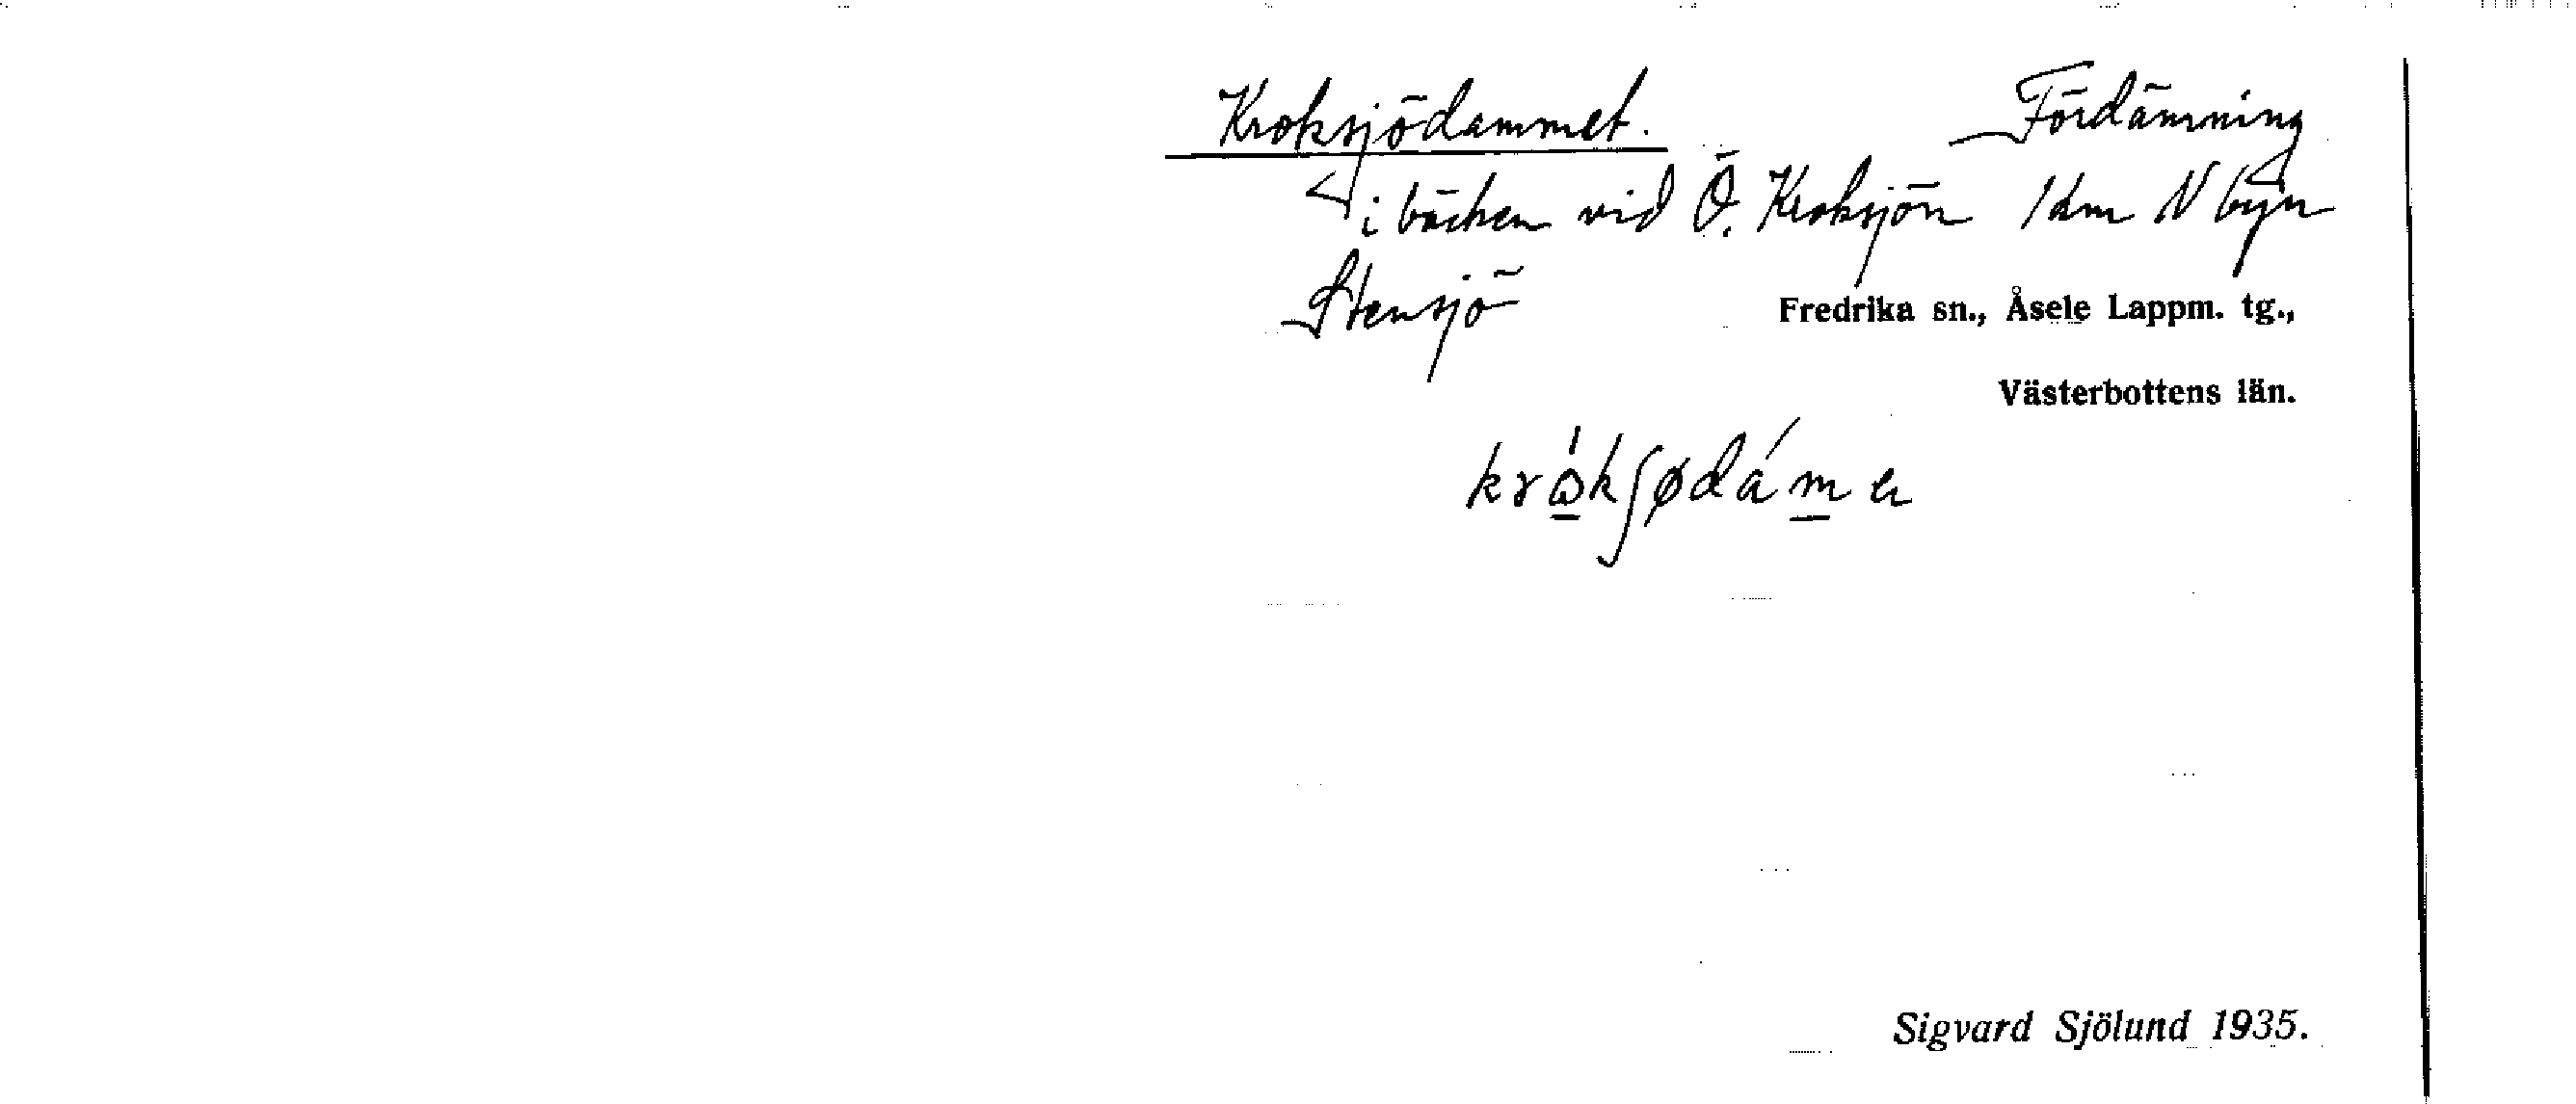 Kroksjödammet. Fördämning
i bäcken vid Ö. Kroksjön 1 km N byn
Stensjö
Fredrika sn., Åsele Lappm. tg.,
Västerbottens län.
Sigvard Sjölund 1935.